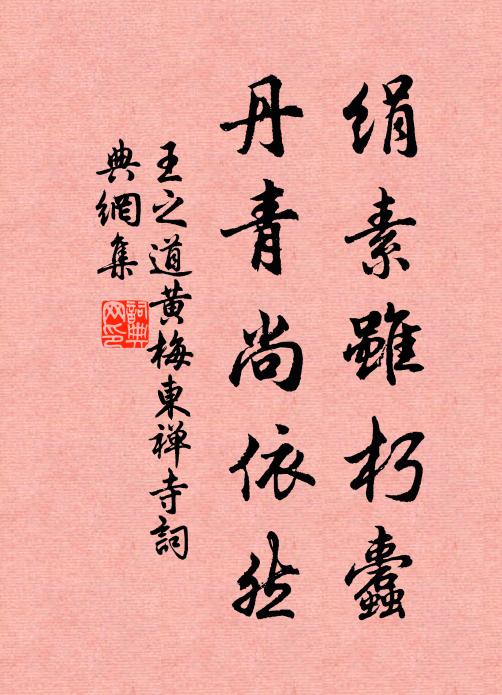 绢素雖朽蠹
丹青尚依然
王之道黄梅東禅寺詞
典網集
詞典网印